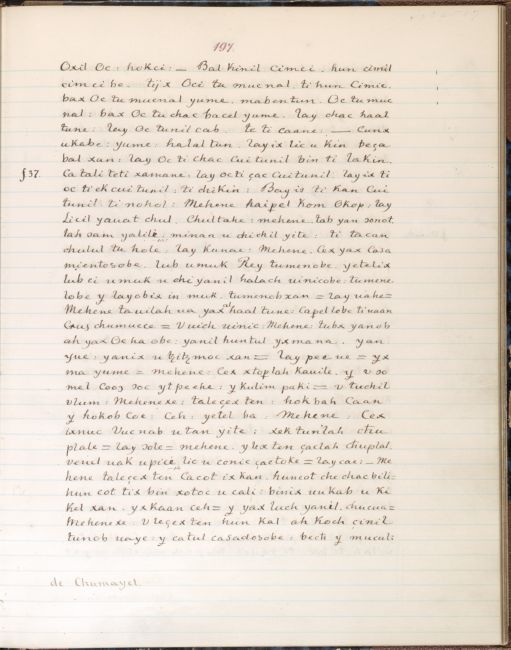 197.
Oxil Oc: hokci: — Bal Kinil cimci. hun cimil
cimcibe. tijx Oci tu mucnal. ti hun Cimic.
bax Oc tu mucnal yume, maben tun. Oc tu muc
nal: bax Oc tu chac pacel yume. lay chac haal
tune: lay Oc tunil cab. te ti caane: — Cunx
u kabe: yume: halal tun. layix lic u Kin
bal xun: lay Oc ti chac Cuitunil bin ti lakin.
Catalitetixamane: lay octi çac Cuitunil. layix ti
oc ti ek cuitunil: ti chikin: Bay is ti Kan Cui
tunil ti nohol: Mehene haipel Kom Okop. lay
Licil yauat chul. Chultahe: mehene. tab yan
lah sam yalile. minan u chichil yite: ti tacan
chulul tu hole. lay Kunae: Mehene. Cex yax Casa
mientosobe. lub u muk Rey tumenobe. yetelix
lub ci u muk u chiyanil halach uinicobe: tumene
lobe y layobix in muk. tumenobxan = lay uahe=
Mehene ta uilah ua yax al haal tune: Capel lobe ti uaan
Cruz chumucce = V uich uinic: Mehene: tubx yanob
ah yax Ocha obe: yanil huntul yx mana. yan
yue: yanix u moc xan = lay pee ue = yx
ma yume = mehene: Cex xtoplah Kauile. y v so
mel Cooz soc yt pechc: y Kulim paki = v tuchil
vlum: Mehenexe: taleçex ten: hokbah Caan
y hokob Coe: Ceh: yetel ba. Mehene. Cex
ixnuc Vucnab utan yite: xektunlah chu
plale = lay sole = mehene. ylex ten çaclah chuplal
venel nak u picie lic u conic çactoke = lay cae: — Me
hene taleçex ten Cacot ix Kan. huncot che chac bili=
hun cot tix bin xotoc u cali: binix uukab u Ki
Kel xan. yx Kaan ceh = y yax luch yanil. chucua=
Mehenexe: v leçex ten hun Kal ah Koch çinil
tunob uaye: y catul casadosobe: bech y mucul:
§37.
de Chumayel.